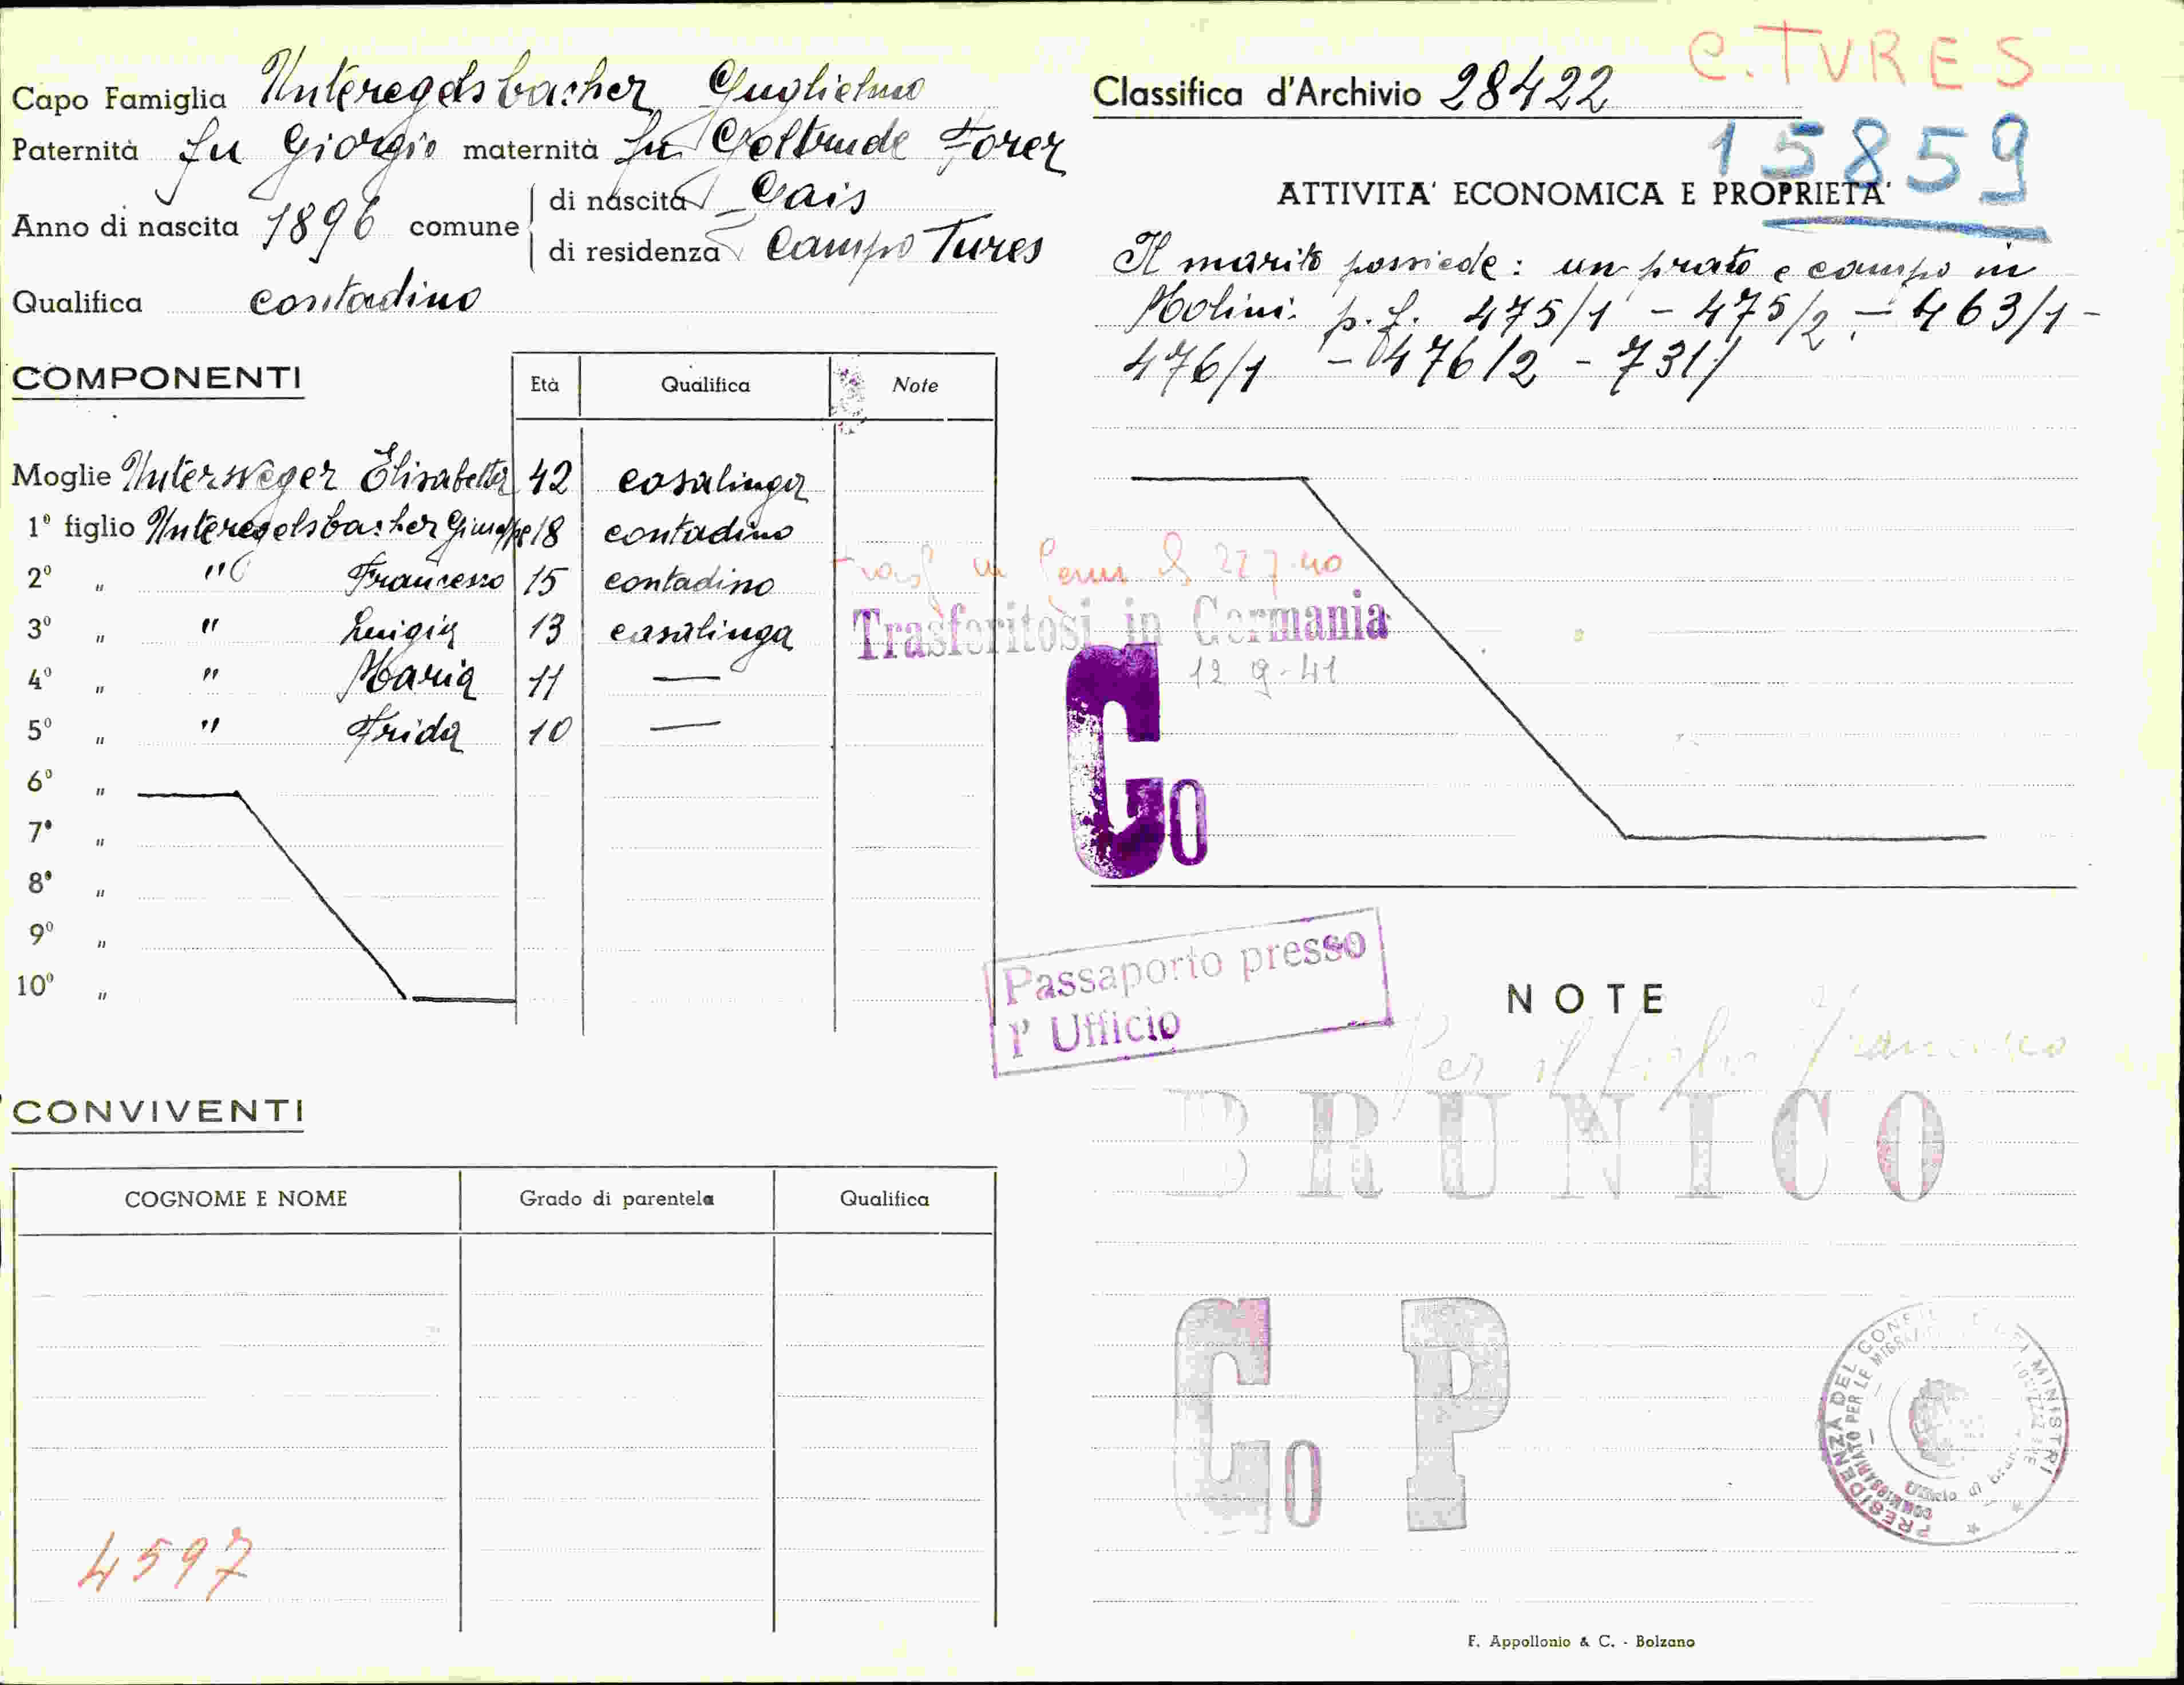 Capo Famiglia Unteregelsbacher Guglielmo
Paternità fu Giorgio maternità fu Geltrude Forer
Anno di nascita 1896 comune di nascita Gais
di residenza Campo Tures
Qualifica contadino
COMPONENTI
Età Qualifica Note
Moglie Unterweger Elisabetta 42 casalinga
1º figlio Unteregelsbacher Giuseppe 18 contadino
2º " " Francesco 15 contadino
3º " " Luigia 13 casalinga
4º " " Maria 11 —
5º " " Frida 10 —
6º "
7º "
8º "
9º "
10º "
CONVIVENTI
COGNOME E NOME Grado di parentela Qualifica
4597
C. TURES
Classifica d'Archivio 28422
15859
ATTIVITA' ECONOMICA E PROPRIETA'
Il marito possiede: un prato e campo in
Molini: p. f. 475/1 - 475/2 - 463/1 -
476/1 - 476/2 - 731/
in 22 7-40
Trasferitosi in Germania
12 9-41
Co
Passaporto presso
l' Ufficio
NOTE
Per il figlio Francesco
BRUNICO
Co P
PRESIDENZA DEL CONSIGLIO DEI MINISTRI
COMMISSARIATO PER LE MIGRAZIONI
Ufficio di Brunico
F. Appollonio & C. - Bolzano